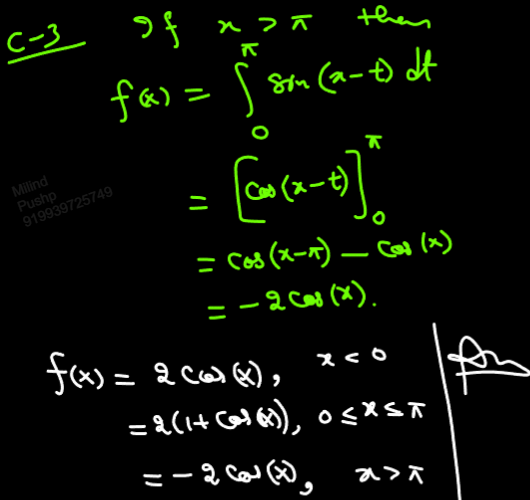 C-3 If x > π then
f(x) = ∫₀^π sin(x-t) dt
= [cos(x-t)]₀^π
= cos(x-π) - cos(x)
= -2 cos(x).
Milind
Pushp
919939725749
f(x) = 2 cos(x), x < 0
= 2(1 + cos(x)), 0 ≤ x ≤ π
= -2 cos(x), x > π
Ans